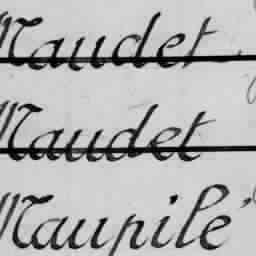 Maudet
Maudet
Maupilé